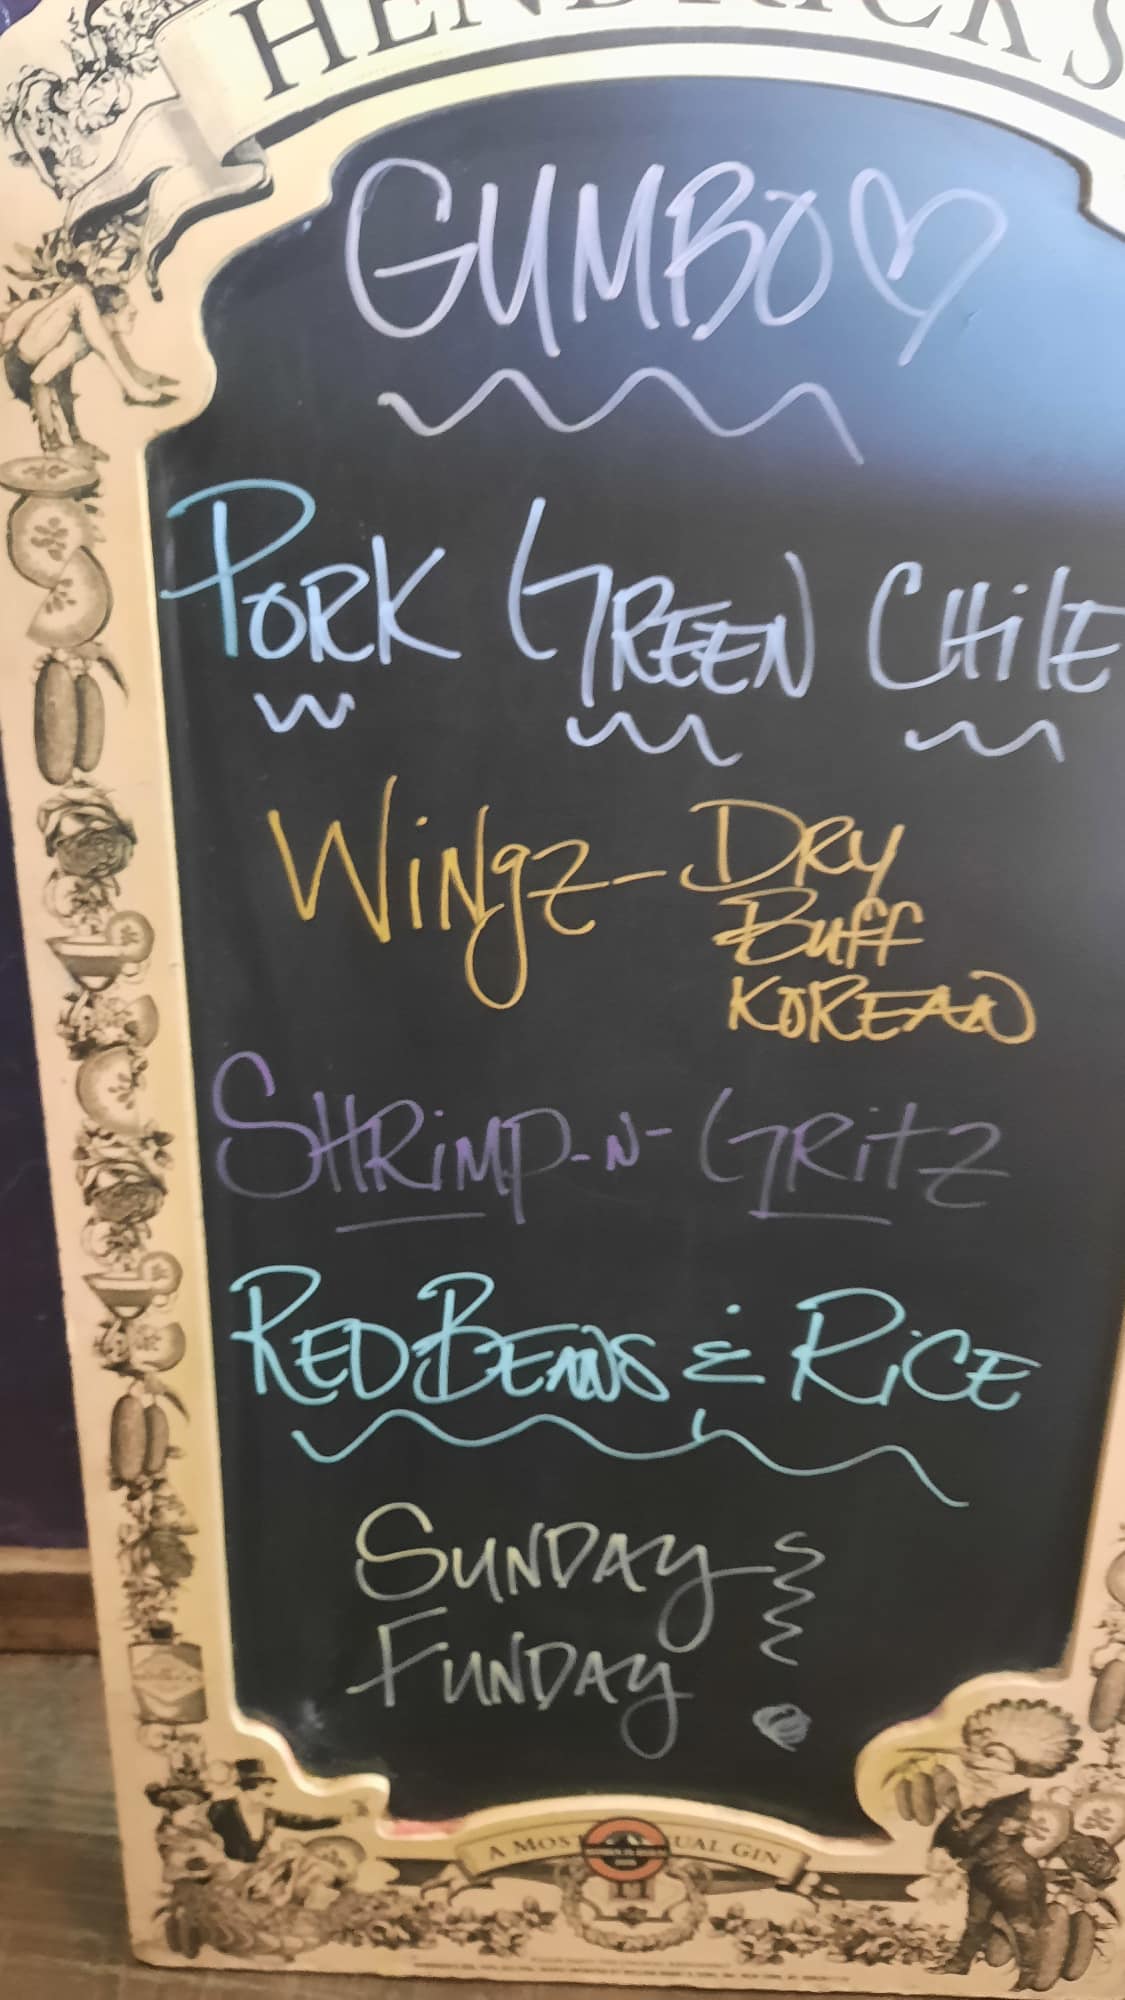 HENDRICK'S
GUMBO
PORK GREEN CHILE
WiNgz - DRy
Buff
KOREAN
SHRiMP-N-GRitZ
RED BEANS & RiCE
SUNDAY
FUNDAY
A MOST UAL GIN